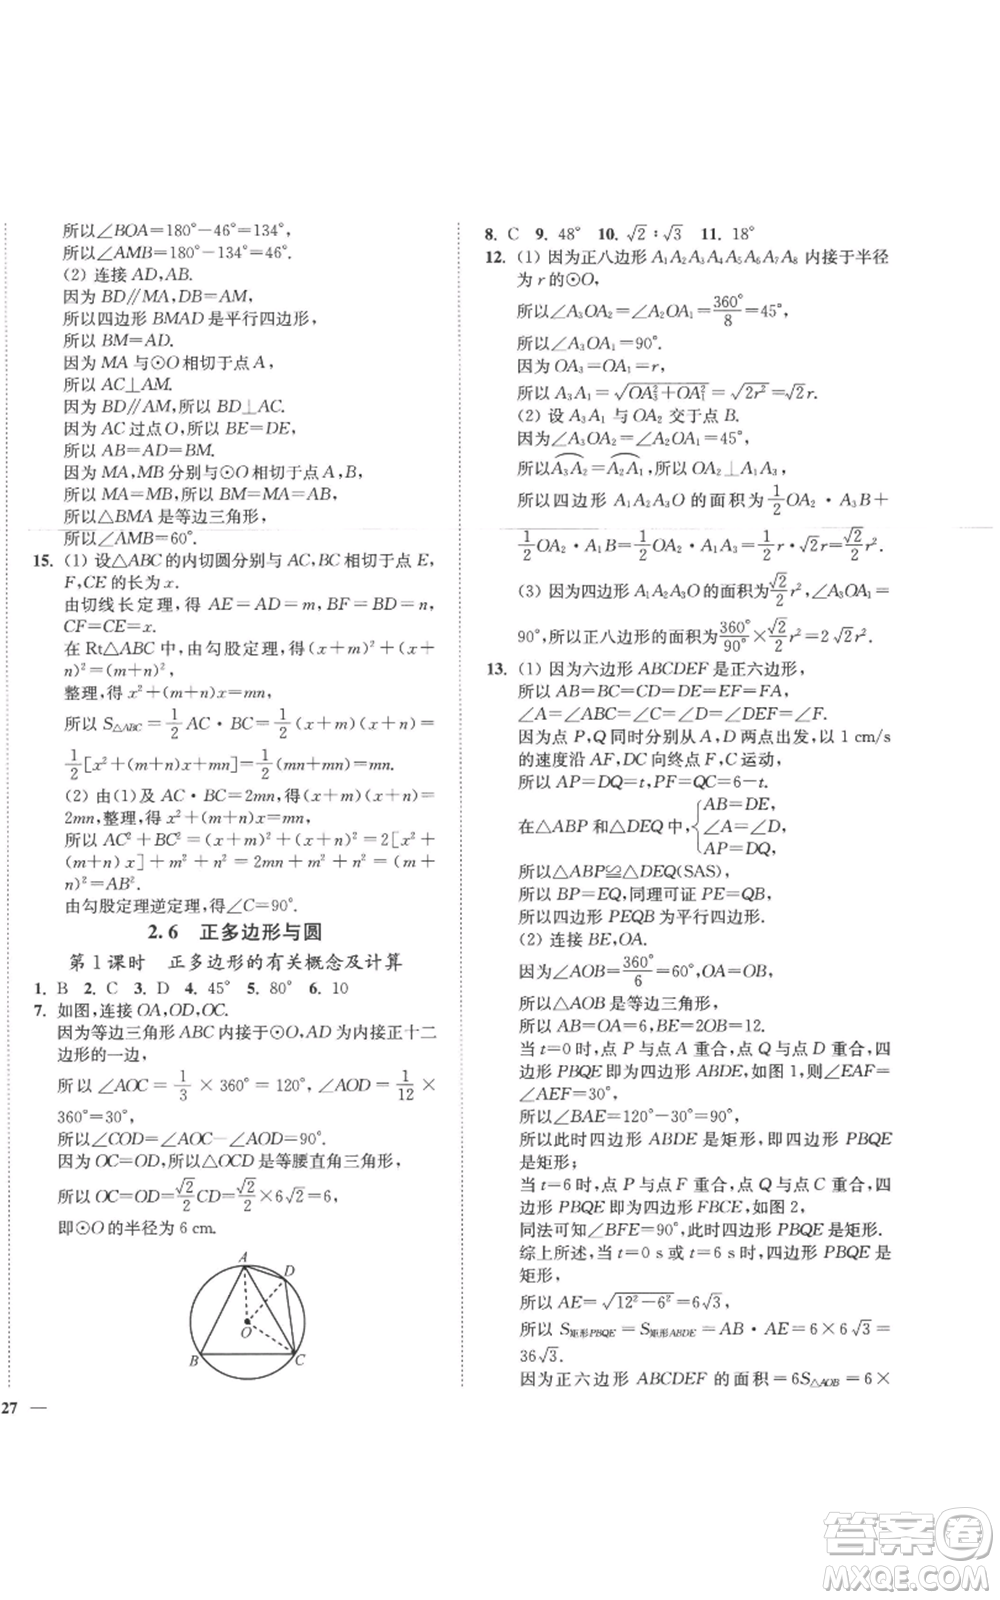 所以∠BOA=180°-46°=134°,
所以∠AMB=180°-134°=46°.
(2) 连接 AD,AB.
因为 BD∥MA,DB=AM,
所以四边形 BMAD 是平行四边形,
所以 BM=AD.
因为 MA 与⊙O 相切于点 A,
所以 AC⊥AM.
因为 BD∥AM,所以 BD⊥AC.
因为 AC 过点 O,所以 BE=DE,
所以 AB=AD=BM.
因为 MA,MB 分别与⊙O 相切,
所以 MA=MB,所以 BM=MA=AB,
所以△BMA 是等边三角形,
所以∠AMB=60°.
15. (1) 设△ABC 的内切圆分别与 AC,BC 相切于点 E,
F,CE 的长为 x.
由切线长定理,得 AE=AD=m,BF=BD=n,
CF=CE=x.
在 Rt△ABC 中,由勾股定理,得(x+m)²+(x+
n)²=(m+n)²,
整理,得 x²+(m+n)x=mn,
所以 S△ABC=1/2 AC·BC=1/2(x+m)(x+n)=
1/2[x²+(m+n)x+mn]=1/2(mn+mn)=mn.
(2) 由(1)及 AC·BC=2mn,得(x+m)(x+n)=
2mn,整理,得 x²+(m+n)x=mn,
所以 AC²+BC²=(x+m)²+(x+n)²=2[x²+
(m+n)x]+m²+n²=2mn+m²+n²=(m+
n)²=AB².
由勾股定理逆定理,得∠C=90°.
2.6 正多边形与圆
第 1 课时 正多边形的有关概念及计算
1. B 2. C 3. D 4. 45° 5. 80° 6. 10
7. 如图,连接 OA,OD,OC.
因为等边三角形 ABC 内接于⊙O,AD 为内接正十二
边形的一边,
所以∠AOC=1/3×360°=120°,∠AOD=1/12×
360°=30°,
所以∠COD=∠AOC-∠AOD=90°.
因为 OC=OD,所以△OCD 是等腰直角三角形,
所以 OC=OD=√2/2 CD=√2/2×6√2=6,
即⊙O 的半径为 6 cm.
A
D
O
B
C
27 —
8. C 9. 48° 10. √2∶√3 11. 18°
12. (1) 因为正八边形 A₁A₂A₃A₄A₅A₆A₇A₈ 内接于半径
为 r 的⊙O,
所以∠A₃OA₂=∠A₂OA₁=360°/8=45°,
所以∠A₃OA₁=90°.
因为 OA₃=OA₁=r,
所以 A₃A₁=√(OA₃²+OA₁²)=√(2r²)=√2r.
(2) 设 A₃A₁ 与 OA₂ 交于点 B.
因为∠A₃OA₂=∠A₂OA₁=45°,
所以A₃A₂=A₂A₁,所以 OA₂⊥A₁A₃,
所以四边形 A₁A₂A₃O 的面积为1/2OA₂·A₃B+
1/2OA₂·A₁B=1/2OA₂·A₃A₁=1/2r·√2r=√2/2r².
(3) 因为四边形 A₁A₂A₃O 的面积为√2/2r²,∠A₃OA₁=
90°,所以正八边形的面积为360°/90°×√2/2r²=2√2r².
13. (1) 因为六边形 ABCDEF 是正六边形,
所以 AB=BC=CD=DE=EF=FA,
∠A=∠ABC=∠C=∠D=∠DEF=∠F.
因为点 P,Q 同时分别从 A,D 两点出发,以 1 cm/s
的速度沿 AF,DC 向终点 F,C 运动,
所以 AP=DQ=t,PF=QC=6-t.
在△ABP 和△DEQ 中,{AB=DE, ∠A=∠D, AP=DQ,
所以△ABP≌△DEQ(SAS),
所以 BP=EQ,同理可证 PE=QB,
所以四边形 PEQB 为平行四边形.
(2) 连接 BE,OA.
因为∠AOB=360°/6=60°,OA=OB,
所以△AOB 是等边三角形,
所以 AB=OA=6,BE=2OB=12.
当 t=0 时,点 P 与点 A 重合,点 Q 与点 D 重合,四
边形 PBQE 即为四边形 ABDE,如图 1,则∠EAF=
∠AEF=30°,
所以∠BAE=120°-30°=90°,
所以此时四边形 ABDE 是矩形,即四边形 PBQE
是矩形;
当 t=6 时,点 P 与点 F 重合,点 Q 与点 C 重合,四
边形 PBQE 即为四边形 FBCE,如图 2,
同法可知∠BFE=90°,此时四边形 PBQE 是矩形.
综上所述,当 t=0 s 或 t=6 s 时,四边形 PBQE 是
矩形,
所以 AE=√(12²-6²)=6√3,
所以 S矩形PBQE=S矩形ABDE=AB·AE=6×6√3=
36√3.
因为正六边形 ABCDEF 的面积=6S△AOB=6×
答案卷
MXQE.COM